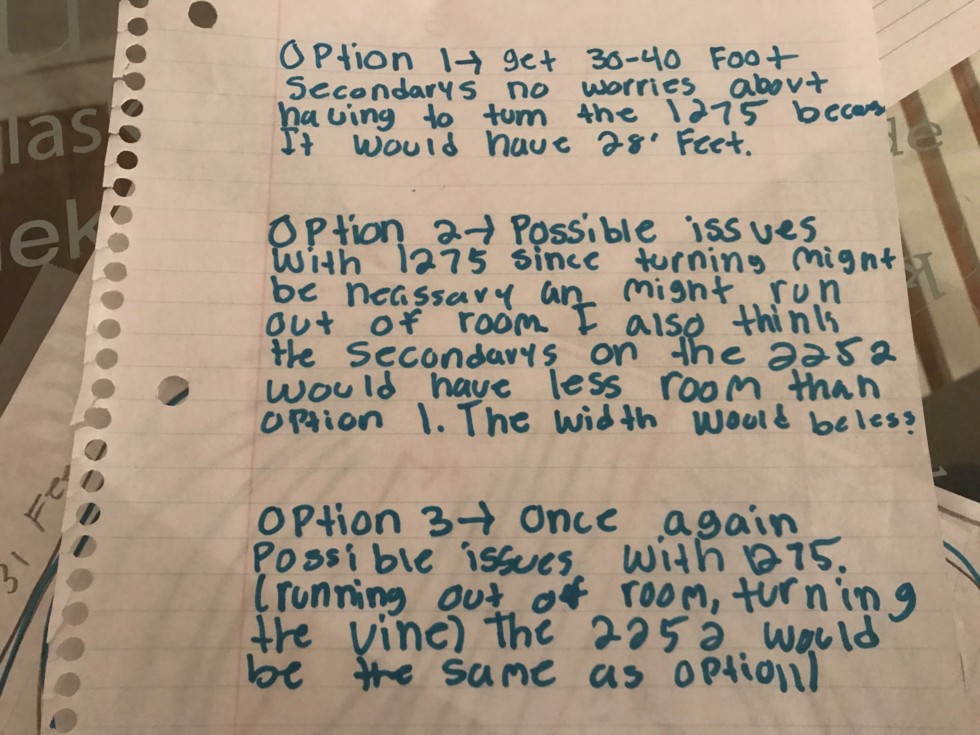 OPtion 1→ get 30-40 Foot
Secondarys no worries about
having to turn the 1275 becaus
It would have 28' Feet.
OPtion 2→ Possible issues
With 1275 since turning mignt
be necissary an mignt run
out of room I also think
the Secondarys on the 2252
would have less room than
option 1. The width would be less?
OPtion 3→ Once again
Possible issues with 1275.
(running out of room, turning
the vine) the 2252 would
be the same as option 1
las
ek
de
31 Feet